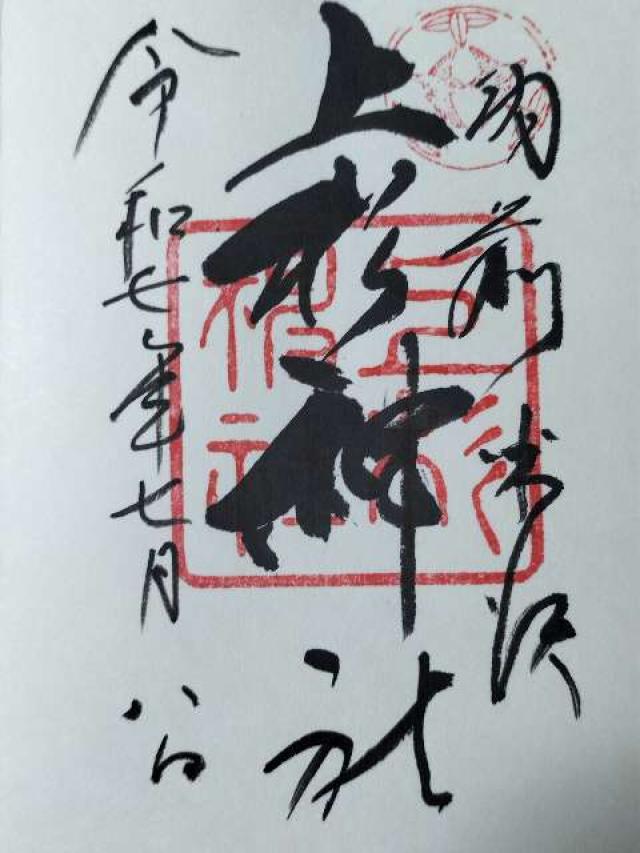 羽前米沢
上杉神社
令和七年七月八日
上杉
神社